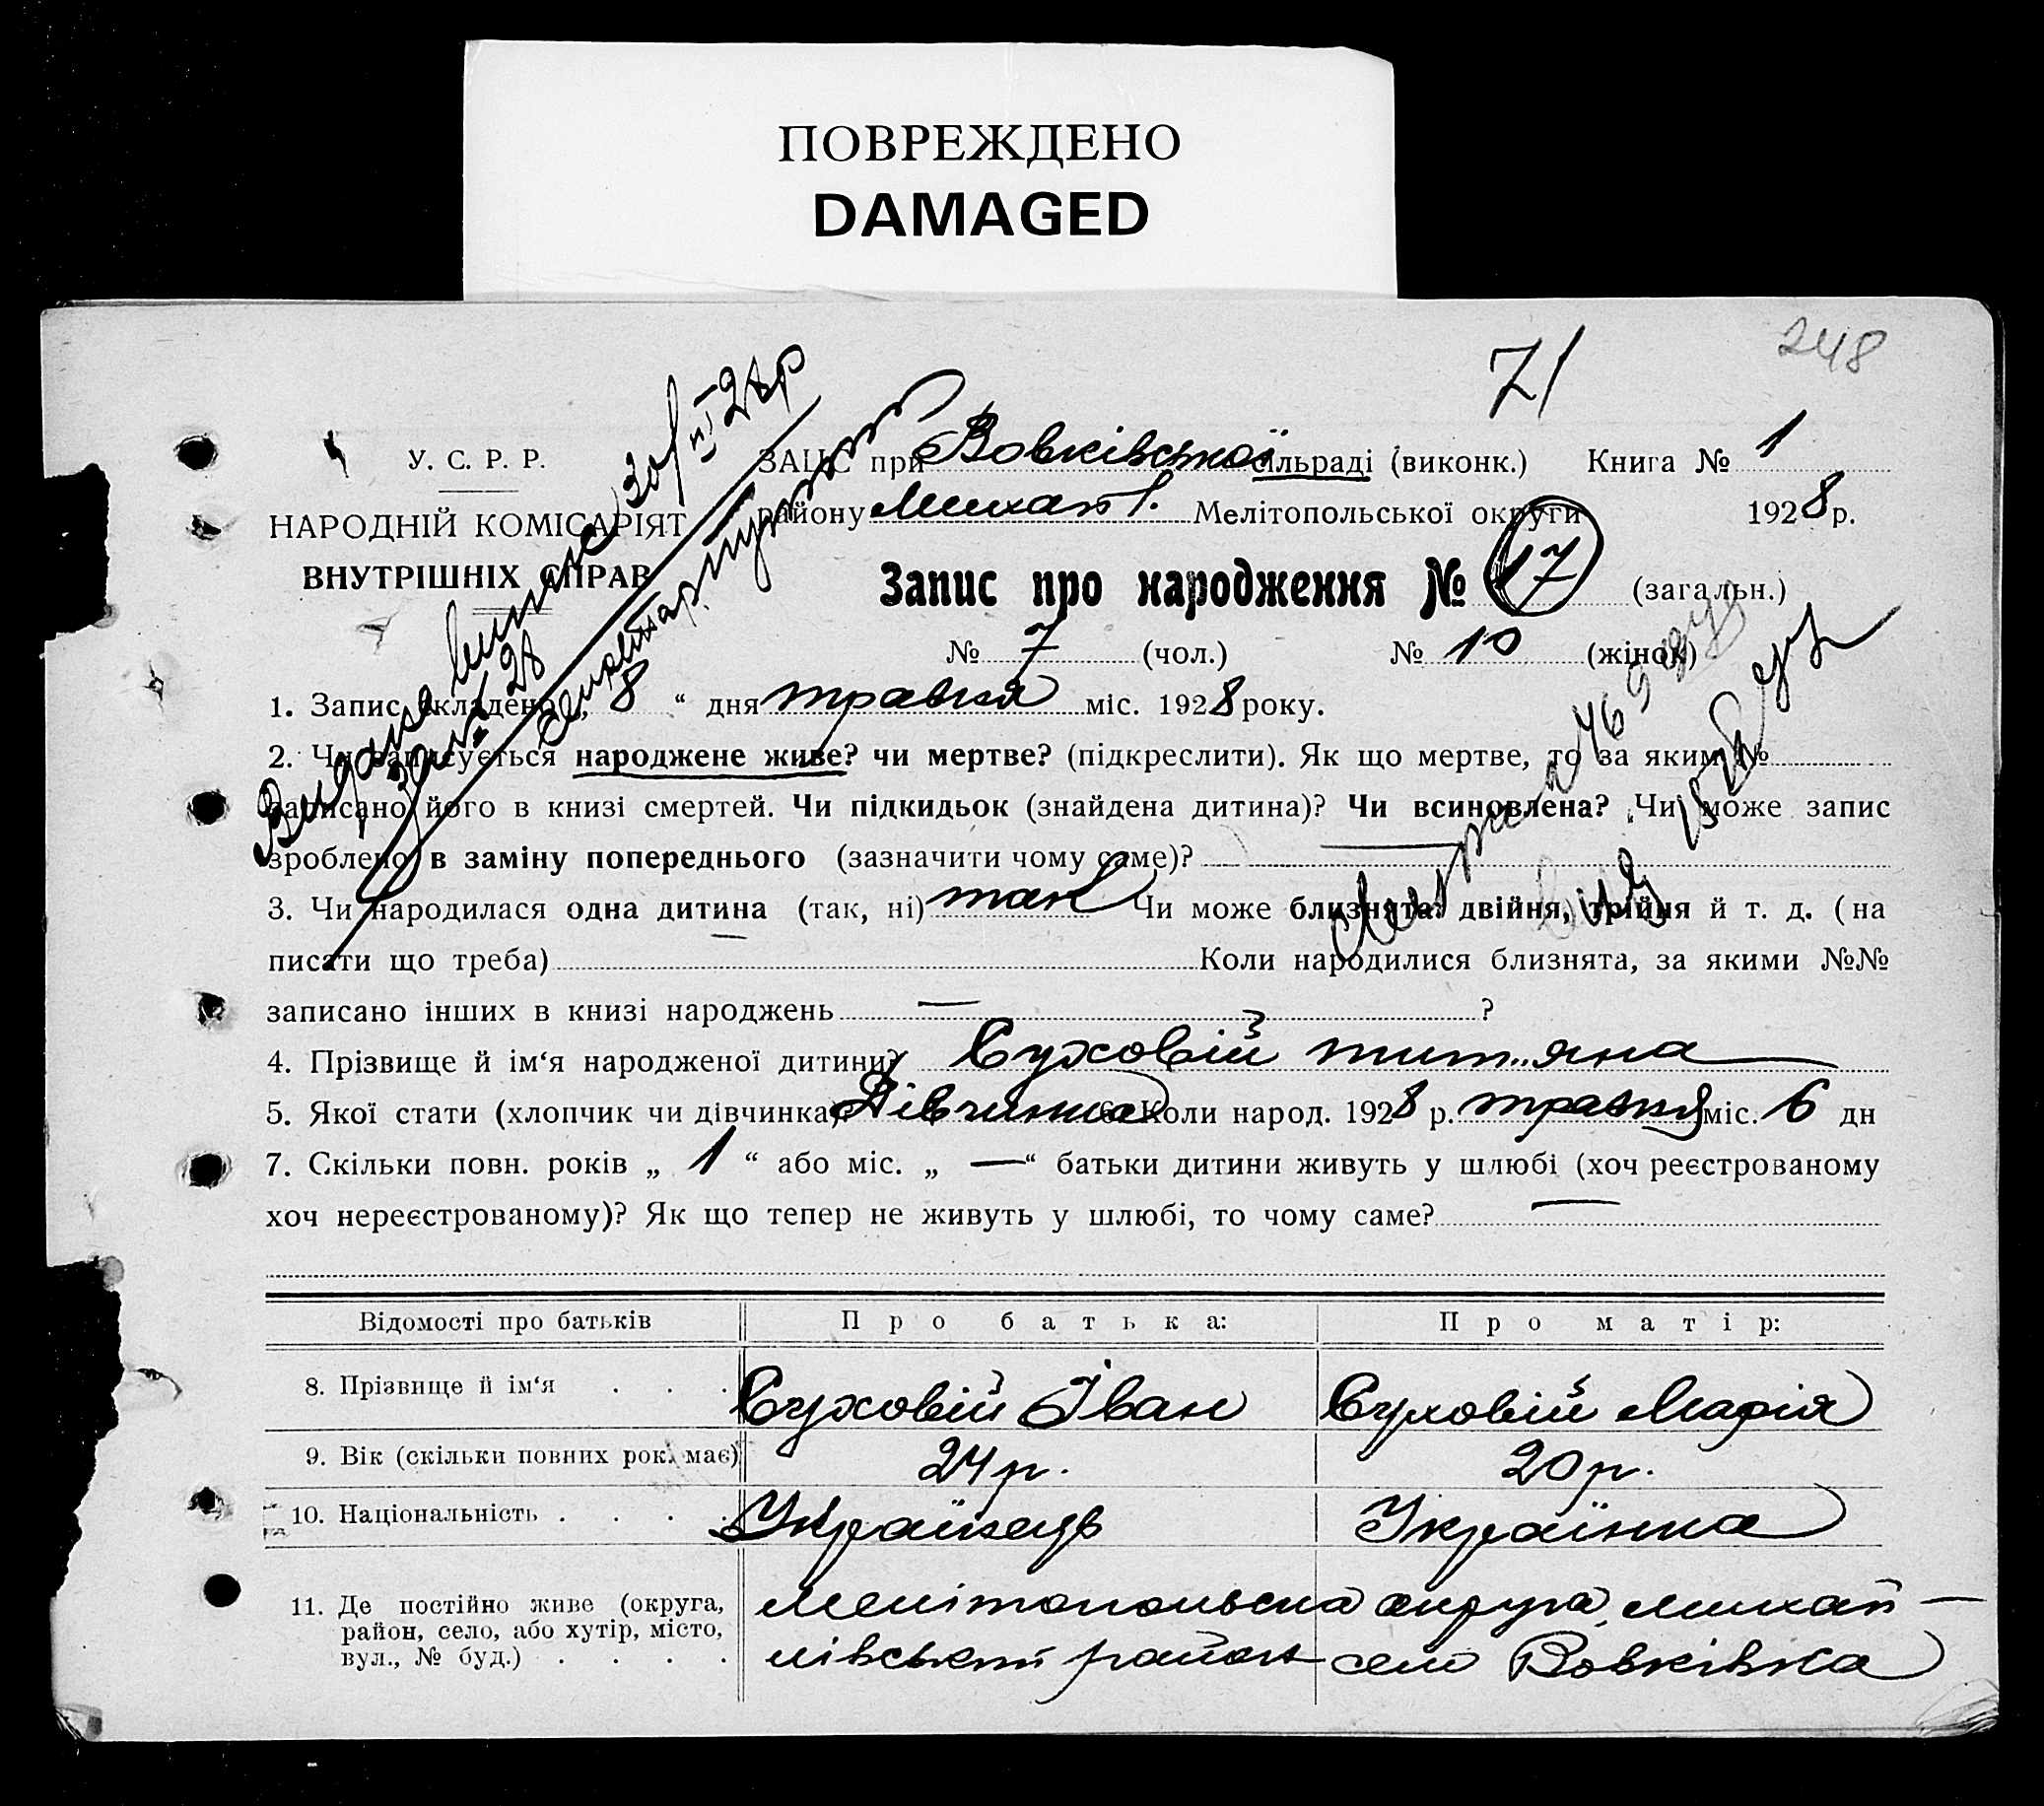 ПОВРЕЖДЕНО
DAMAGED
248
71
У. С. Р. Р.
НАРОДНІЙ КОМІСАРІЯТ
ВНУТРІШНІХ СПРАВ
ЗАЦС при Вовківської сільраді (виконк.) Книга № 1
району Михай Мелітопольської округи 1928 р.
Запис про народження № 17 (загальн.)
№ 7 (чол.) № 10 (жінок)
1. Запис складено „ 8 “ дня травня міс. 1928 року.
2. Чи записується народжене живе? чи мертве? (підкреслити). Як що мертве, то за яким №
записано його в книзі смертей. Чи підкидьок (знайдена дитина)? Чи всиновлена? Чи може запис
зроблено в заміну попереднього (зазначити чому саме)? —
3. Чи народилася одна дитина (так, ні) так Чи може близнята: двійня, трійня й т. д. (на
писати що треба) — Коли народилися близнята, за якими №№
записано інших в книзі народжень — ?
4. Прізвище й ім‘я народженої дитини? Суховій тит„яна
5. Якої стати (хлопчик чи дівчинка) Дівчинка 6. Коли народ. 1928 р. травня міс. 6 дн
7. Скільки повн. років „ 1 “ або міс. „ — “ батьки дитини живуть у шлюбі (хоч реєстрованому
хоч нереєстрованому)? Як що тепер не живуть у шлюбі, то чому саме? —
Відомості про батьків Про батька: Про матір:
8. Прізвище й ім‘я . . . Суховій Іван Суховій Марія
9. Вік (скільки повних рок. має) 24 р. 20 р.
10. Національність . . . . Українець Українка
11. Де постійно живе (округа, район, село, або хутір, місто, вул., № буд.) . . . .
Мелітопольська округа, михай—
лівський район село Вовківка
Видана виписка 30/VI 28 р